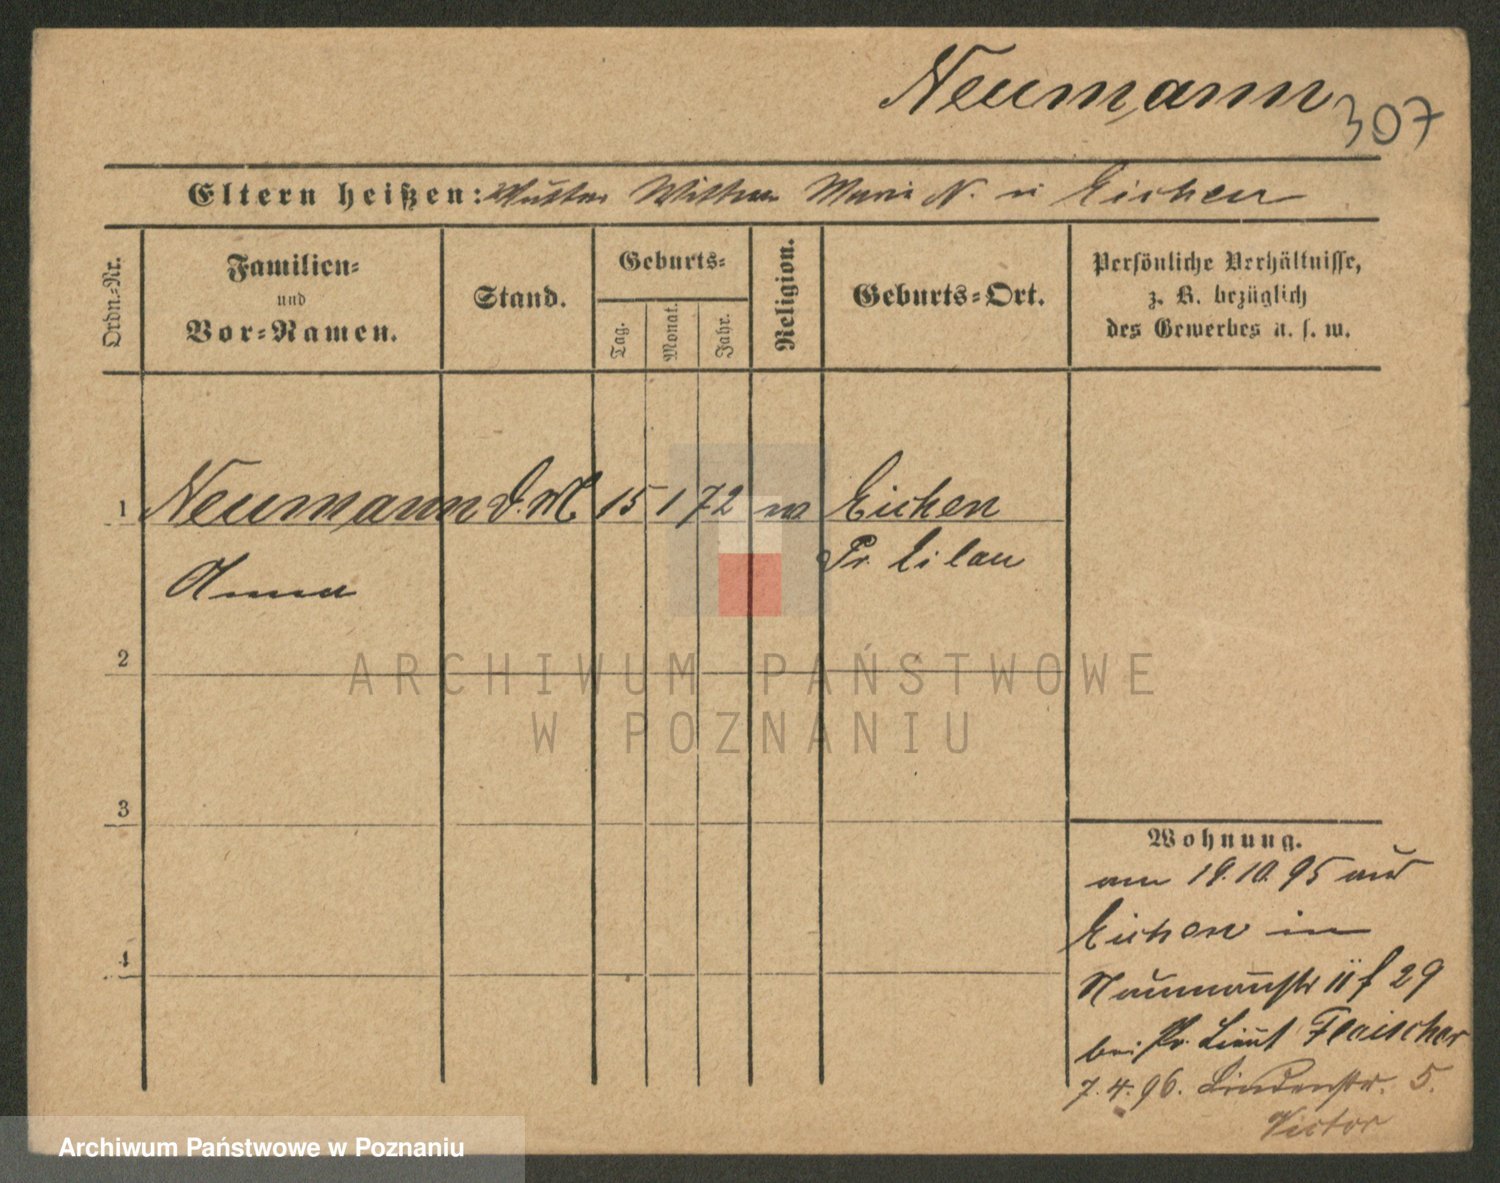 Neumann
307
Eltern heißen: Mutter Wittwe Marie N. in Eichen
Ordn.-Nr.
Familien-
und
Vor-Namen.
Stand.
Geburts-
Tag.
Monat.
Jahr.
Religion.
Geburts-Ort.
Persönliche Verhältnisse,
z. B. bezüglich
des Gewerbes u. s. w.
1 Neumann D. M. 15 1 72 Eichen
Anna Pr. Eilau
2
3
4
ARCHIWUM PAŃSTWOWE
W POZNANIU
Wohnung.
am 19.10.95 aus
Eichen in
Naumannstr II f 29
bei Pr. Lieut Fleischer
7.4.96. Lindenstr. 5.
Victor
Archiwum Państwowe w Poznaniu